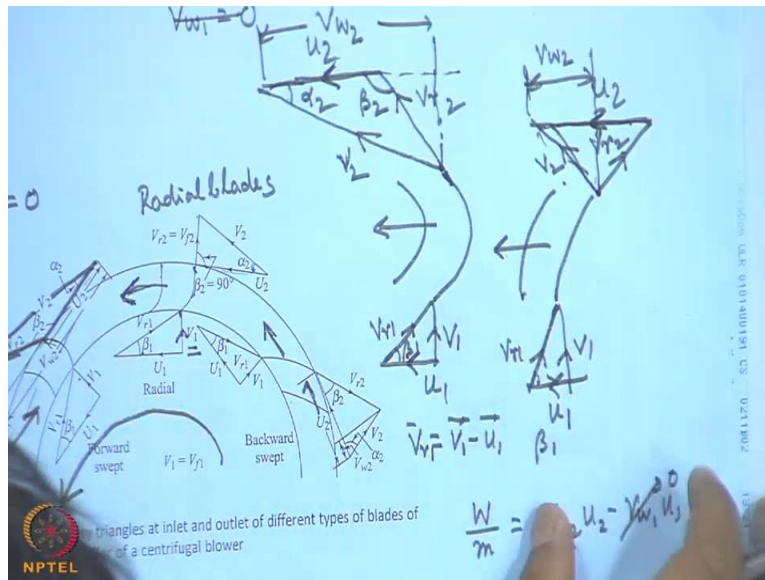 Vw1=0
Vw2
U2
α2
β2
Vr2
V2
Vw2
U2
V2
Vr2
= 0
Radial blades
Vr2 = Vf2
V2
α2
β2 = 90°
U2
α2
V2
β2
U2
Vw2
Vr1
V1
β1
U1
Radial
β1
Vr1
U1
V1
V1
U1
β1
Forward
swept
V1 = Vf1
Backward
swept
β2
U2
Vr2
V2
α2
Vw2
Vr1
β1
V1
U1
Vr1
V1
U1
β1
Vr1 = V1 - U1
W/m = U2 - Vw1 U1 0
triangles at inlet and outlet of different types of blades of
of a centrifugal blower
NPTEL